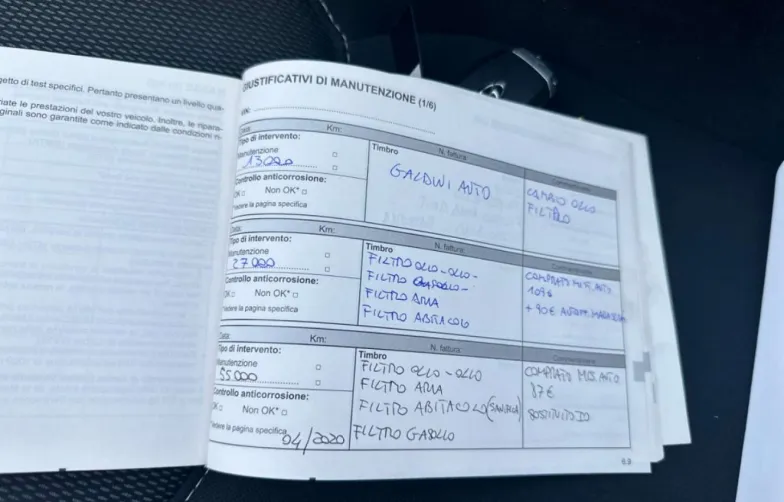 getto di test specifici. Pertanto presentano un livello qua-
iate le prestazioni del vostro veicolo. Inoltre, le ripara-
ginali sono garantite come indicato dalle condizioni
GIUSTIFICATIVI DI MANUTENZIONE (1/6)
Data: Km: N. fattura
Tipo di intervento: Timbro
Manutenzione
13000
GALDWI AUTO
CAMBIO OLIO
FILTRO
Controllo anticorrosione:
OK □ Non OK* □
*Vedere la pagina specifica
Data: Km: N. fattura:
Tipo di intervento: Timbro
Manutenzione
27000
FILTRO OLIO-OLIO-
FILTRO GASOLIO-
FILTRO ARIA
FILTRO ABITACOLO
COMPRATO MIS. AUTO
109€
+ 90€
Controllo anticorrosione:
OK □ Non OK* □
*Vedere la pagina specifica
Data: Km: N. fattura:
Tipo di intervento: Timbro
Manutenzione
55000
FILTRO OLIO-OLIO
FILTRO ARIA
FILTRO ABITACOLO
FILTRO GASOLIO
COMPRATO MIS. AUTO
87€
SOSTITUITO IO
Controllo anticorrosione:
OK □ Non OK* □
*Vedere la pagina specifica
04/2020
6.9